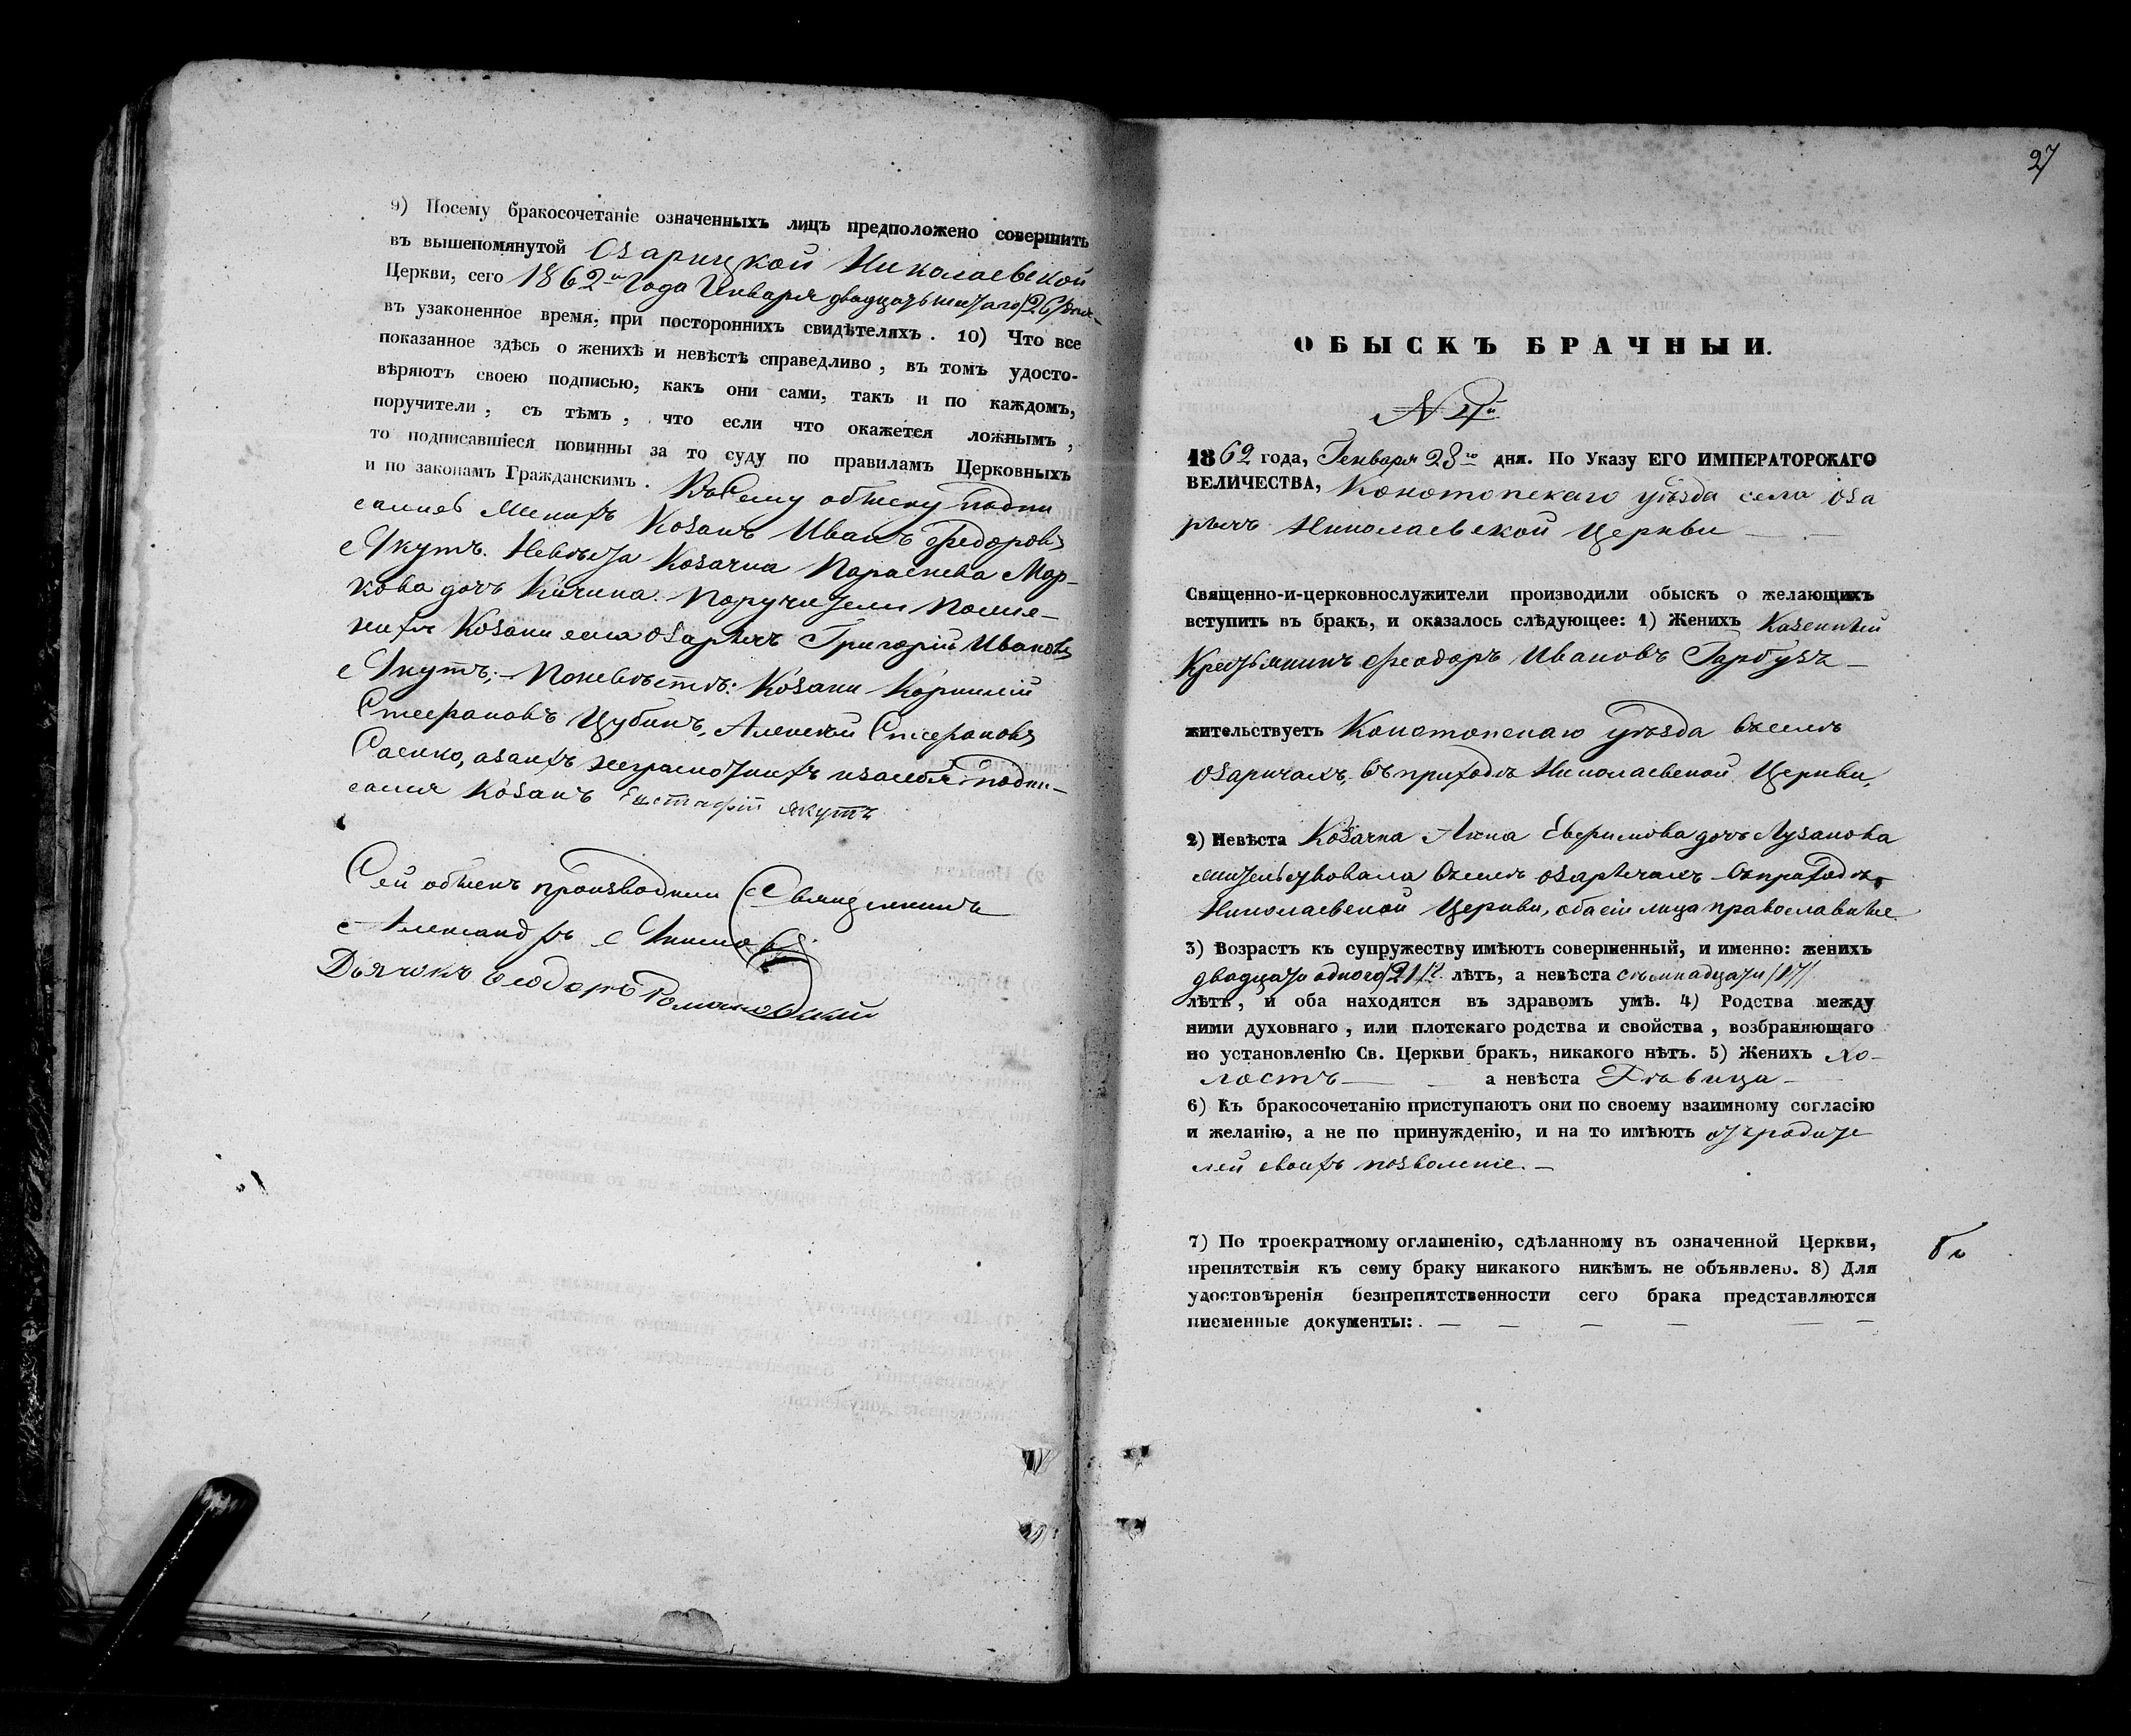 9) Посему бракосочетаніе означенныхъ лицъ предположено совершить
въ вышепомянутой Озарицкой Николаевской
Церкви, сего 1862го года Генваря двадцать шестаго /26/ дня
въ узаконенное время, при постороннихъ свидѣтеляхъ. 10) Что все
показанное здѣсь о женихѣ и невѣстѣ справедливо, въ томъ удосто-
вѣряютъ своею подписью, какъ они сами, такъ и по каждомъ,
поручители, съ тѣмъ, что если что окажется ложнымъ,
то подписавшіеся повинны за то суду по правиламъ Церковныхъ
и по законамъ Гражданскимъ. Къ сему обыску подпи
сались Женихъ Козакъ Иванъ Федоровъ
Якутъ. Невѣста Козачка Параскева Мар-
кова дочь Кичина. Поручители По жени-
хѣ Козаки села Озаричъ Григорій Ивановъ
Якутъ; По невѣстѣ: Козаки Корнилій
Стефановъ Цубинъ, Алексѣй Стефановъ
Саенко, а за ихъ неграмотныхъ и за себя подпи-
сался Козакъ Евстафій Якутъ
Сей обыскъ производили Священникъ
Александръ
Дьячокъ Феодоръ Романовскій
27
ОБЫСКЪ БРАЧНЫЙ.
1862 года, Генваря 28го дня. По Указу ЕГО ИМПЕРАТОРСКАГО
ВЕЛИЧЕСТВА, Конотопскаго уѣзда села Оза
ричъ Николаевской Церкви
Священно-и-церковнослужители производили обыскъ о желающихъ
вступить въ бракъ, и оказалось слѣдующее: 1) Женихъ Казенный
Крестьянинъ Феодоръ Ивановъ Гарбузъ
жительствуетъ Конотопскаго уѣзда въ селѣ
Озаричахъ, въ приходѣ Николаевской Церкви,
2) Невѣста Козачка Анна Евфимова дочь Лузанова
жительствовала въ селѣ Озаричахъ въ приходѣ
Николаевской Церкви, оба сіи лица православные
3) Возрастъ къ супружеству имѣютъ совершенный, и именно: женихъ
двадцать одного /21/ лѣтъ, а невѣста семнадцати /17/
лѣтъ, и оба находятся въ здравомъ умѣ. 4) Родства между
ними духовнаго, или плотскаго родства и свойства, возбраняющаго
по установленію Св. Церкви бракъ, никакого нѣтъ. 5) Женихъ хо-
лостъ а невѣста Дѣвица
6) Къ бракосочетанію приступаютъ они по своему взаимному согласію
и желанію, а не по принужденію, и на то имѣютъ отъ родите
лей своихъ позволеніе.
7) По троекратному оглашенію, сдѣланному въ означенной Церкви,
препятствія къ сему браку никакого никѣмъ не объявлено. 8) Для
удостовѣренія безпрепятственности сего брака представляются
писменные документы: